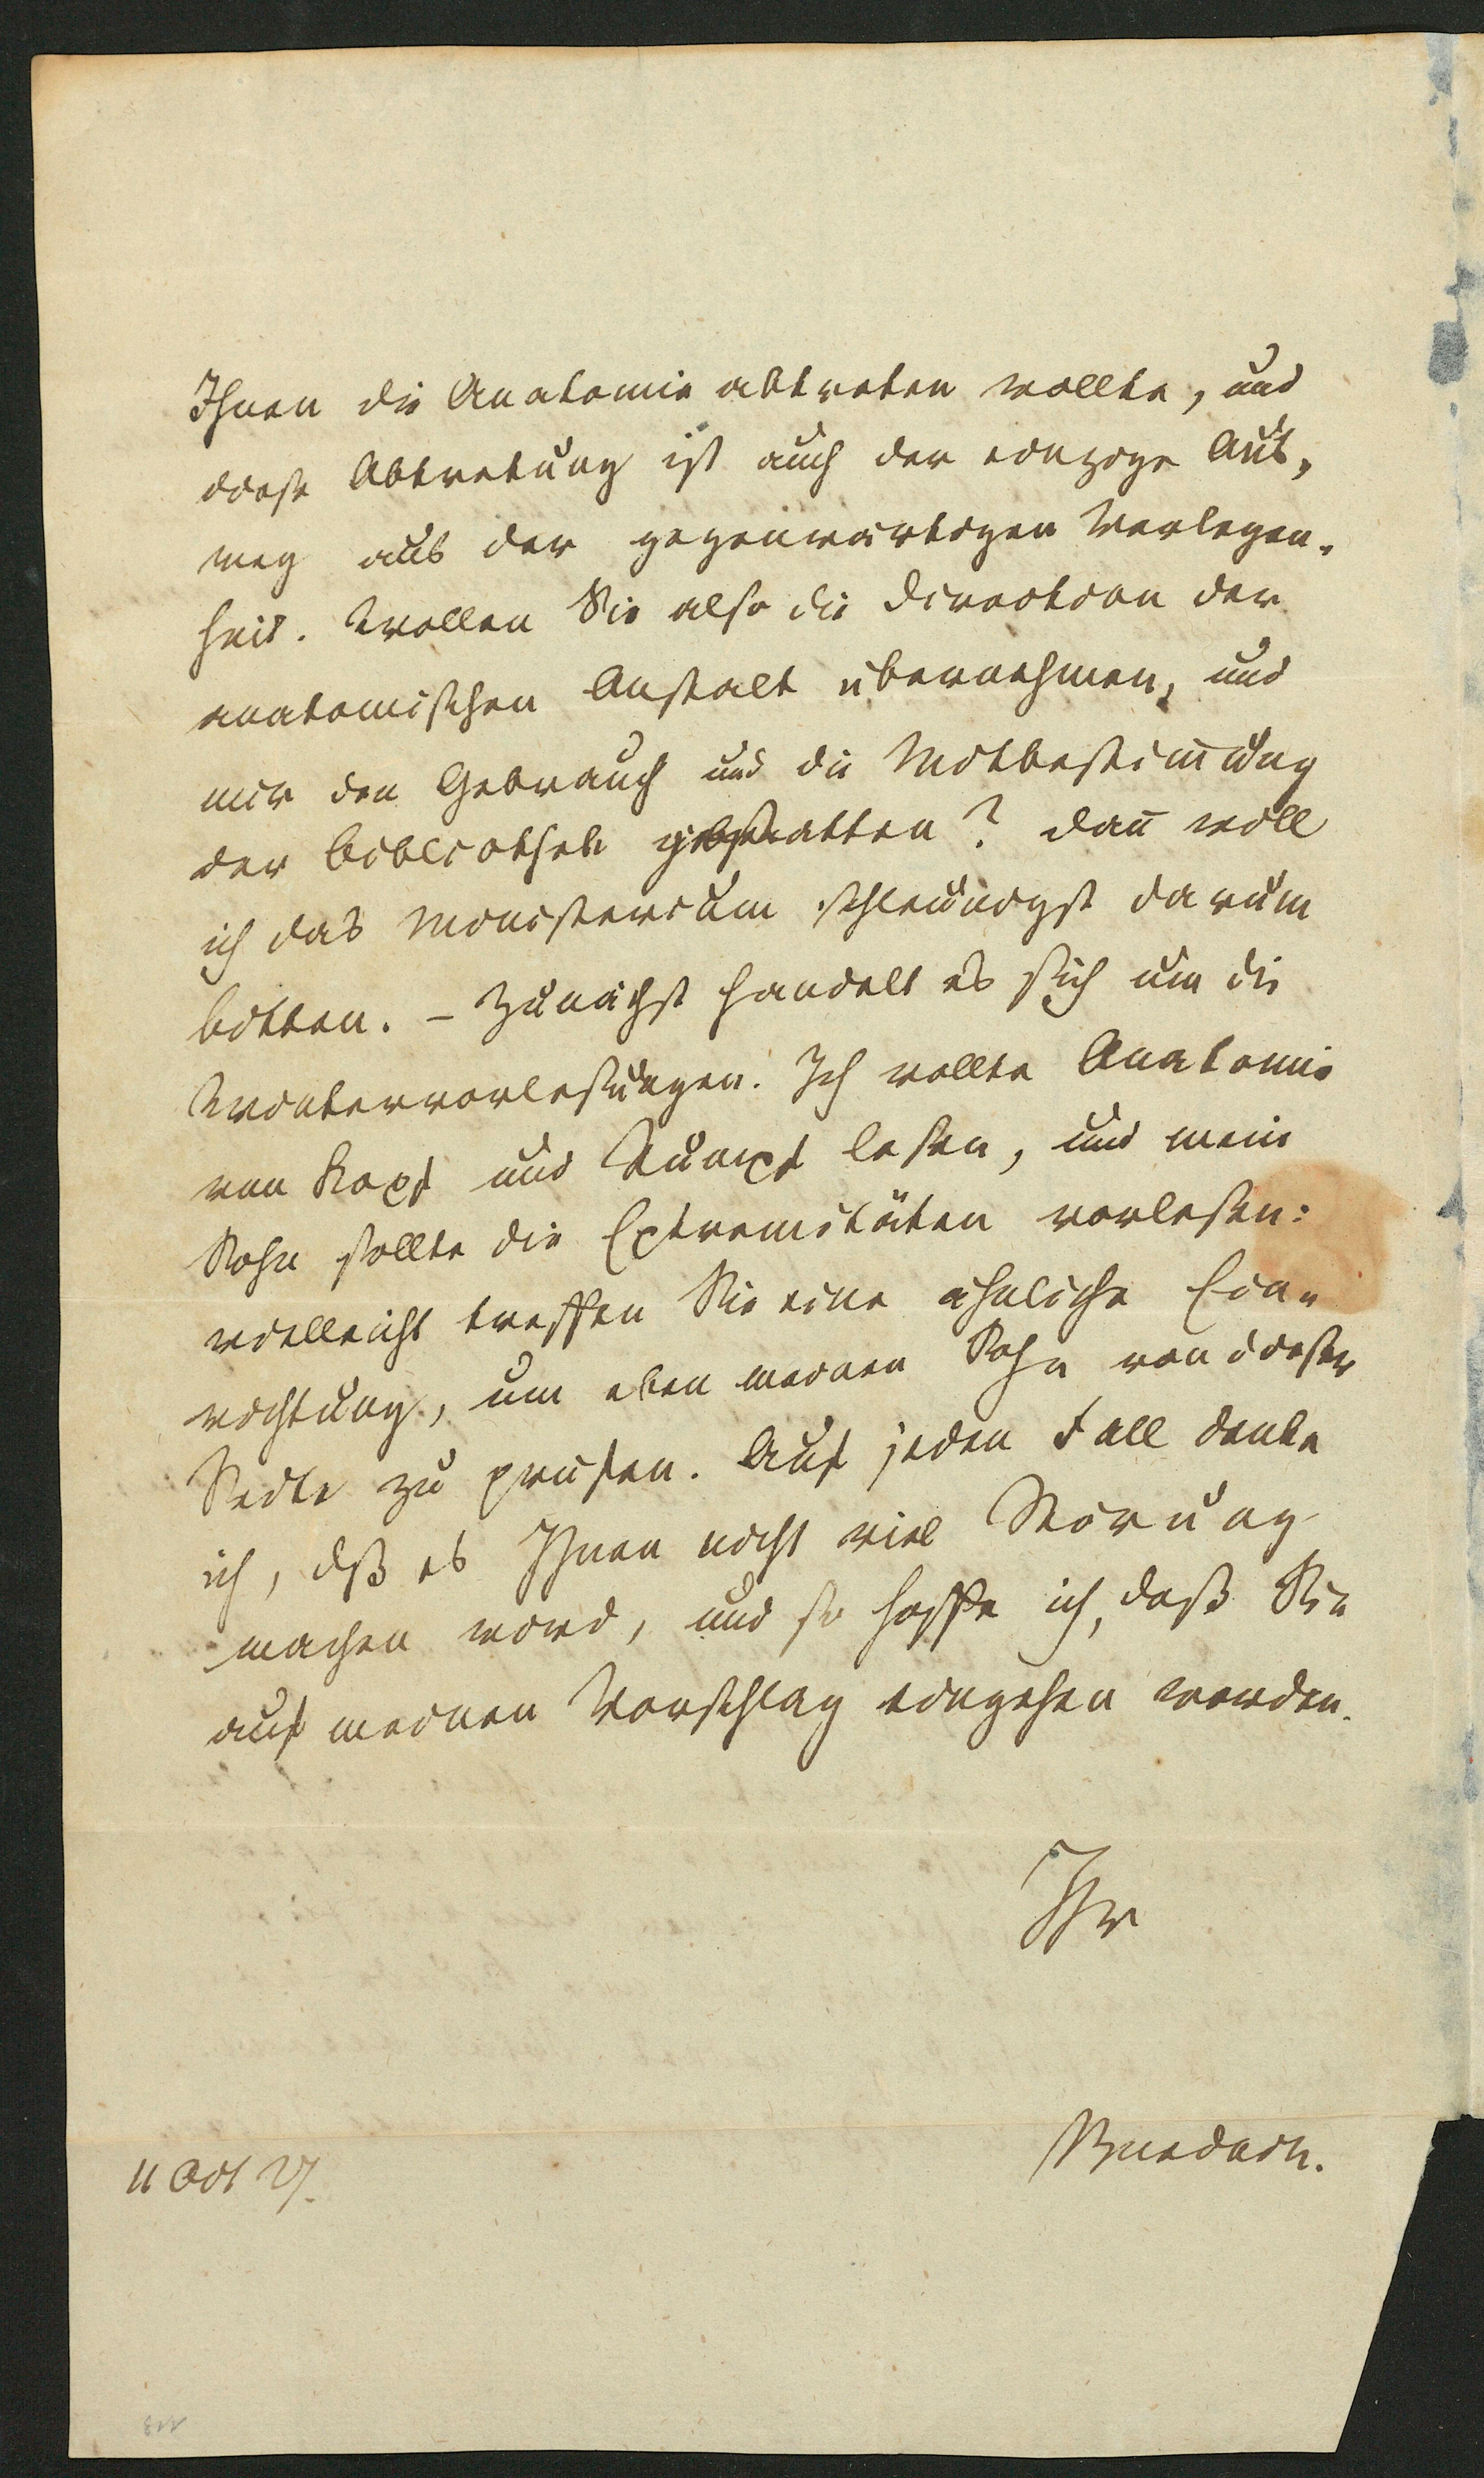 Ihnen die Anatomie abtreten wollte, und
diese Abtretung ist auch der einzige Aus-
weg aus der gegenwärtigen Verlegen-
heit. Wollen Sie also die Direction der
anatomischen Anstalt übernehmen, und
mir den Gebrauch und die Mitbestim̅ung
der Bibliothek gestatten? Dan̅ will
ich das Ministerium schleunigst darum
bitten. – Zunächst handelt es sich um die
Wintervorlesungen. Ich wollte Anatomie
von Kopf und Rumpf lesen, und mein
Sohn sollte die Extremitäten vorlesen:
vielleicht treffen Sie eine ähnliche Ein-
richtung, um eben meinen Sohn von dieser
Seite zu prüfen. Auf jeden Fall denke
ich, dß es Ihnen nicht viel Störung
machen wird, und so hoffe ich, daß Sie
auf meinen Vorschlag eingehen werden.
Ihr
Burdach.
11 Oct 27.